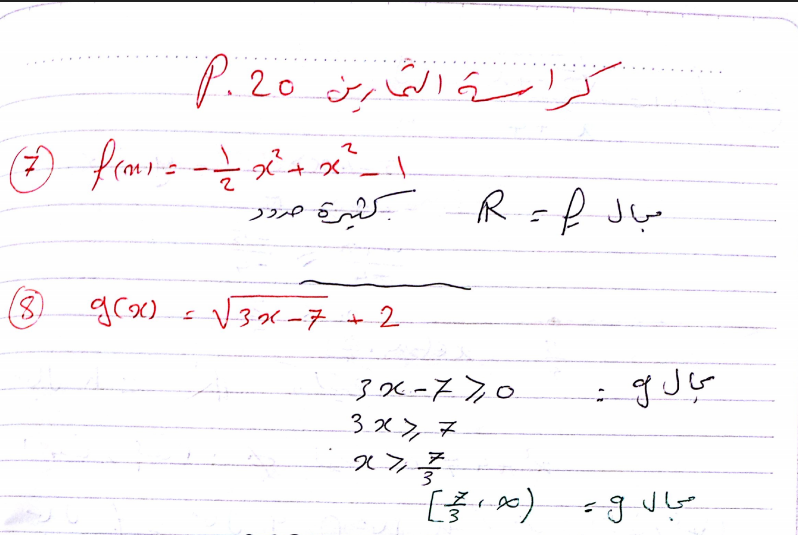 كراسة التمارين P. 20
(7) f(x) = -1/2 x² + x² - 1
كثيرة حدود
مجال f = R
(8) g(x) = √(3x-7) + 2
مجال g = 3x - 7 ⩾ 0
3x ⩾ 7
x ⩾ 7/3
مجال g = [7/3, ∞)